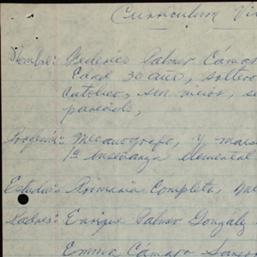 Curriculum Vi
Nombre: Federico Palmer Cámar
Edad 30 años, soltero
Católico, sin vicios, se
parecido,
Progenie: Mecanógrafo, y maes
1ª Enseñanza Elemental
Estudios: Primaria Completa,
Padres: Enrique Palmer Gonzalez
Emma Cámara